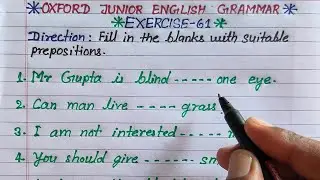 *OXFORD JUNIOR ENGLISH GRAMMAR*
*EXERCISE-61*
Direction: Fill in the blanks with suitable
prepositions.
1. Mr Gupta is blind ----- one eye.
2. Can man live ---- grass
3. I am not interested -----
4. You should give -----